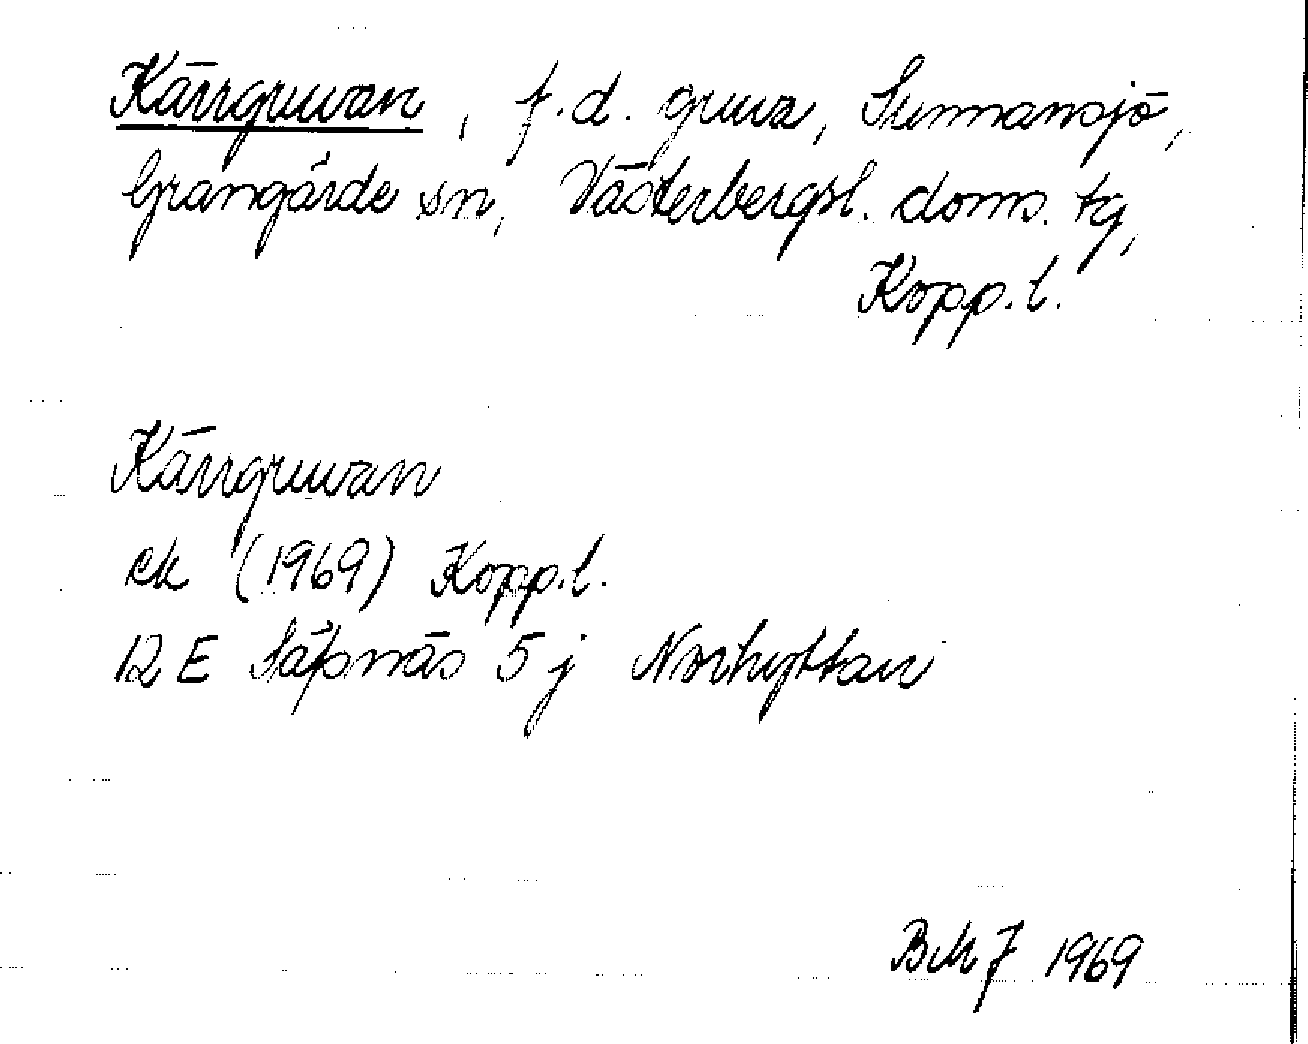 Kärrgruvan, f.d. gruva, Sunnansjö,
Grangärde sn, Västerbergsl. doms. tg,
Kopp.l.
Kärrgruvan
ek (1969) Kopp.l.
12 E Säfsnäs 5 j Norhyttan
BMJ 1969